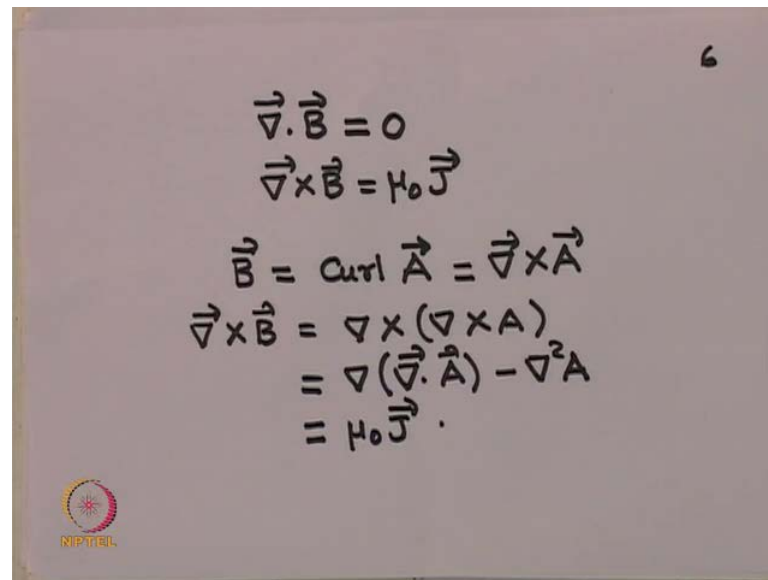 6
∇⃗.B⃗ = 0
∇⃗×B⃗ = μ₀J⃗
B⃗ = Curl A⃗ = ∇⃗×A⃗
∇⃗×B⃗ = ∇×(∇×A)
= ∇(∇⃗.A⃗) − ∇²A
= μ₀J⃗ .
NPTEL